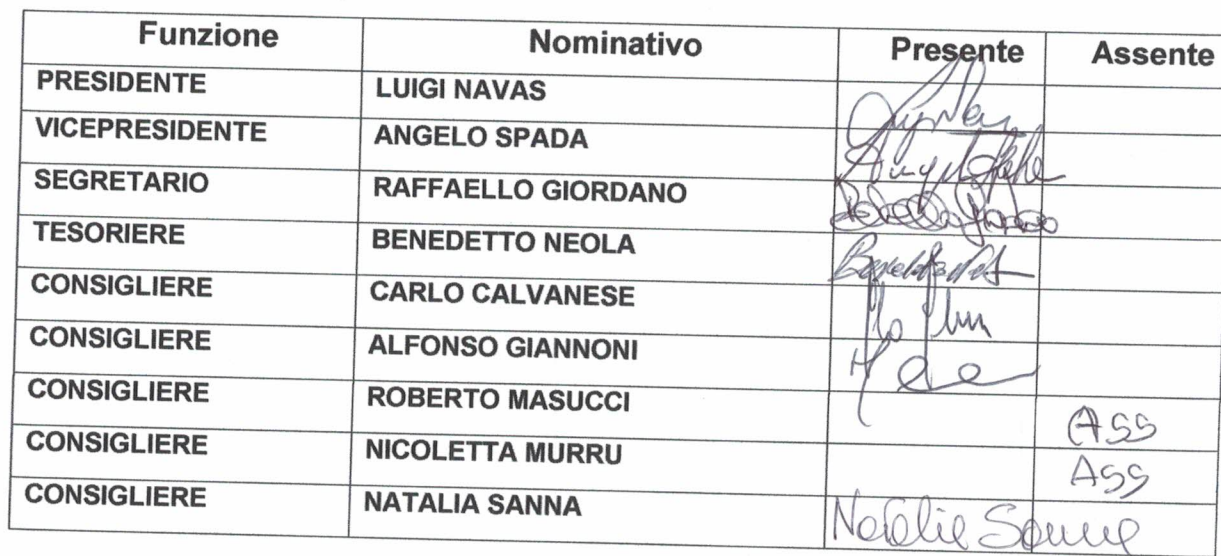 Funzione Nominativo Presente Assente
PRESIDENTE LUIGI NAVAS
VICEPRESIDENTE ANGELO SPADA
SEGRETARIO RAFFAELLO GIORDANO
TESORIERE BENEDETTO NEOLA
CONSIGLIERE CARLO CALVANESE
CONSIGLIERE ALFONSO GIANNONI
CONSIGLIERE ROBERTO MASUCCI ASS
CONSIGLIERE NICOLETTA MURRU ASS
CONSIGLIERE NATALIA SANNA Natalia Sanna